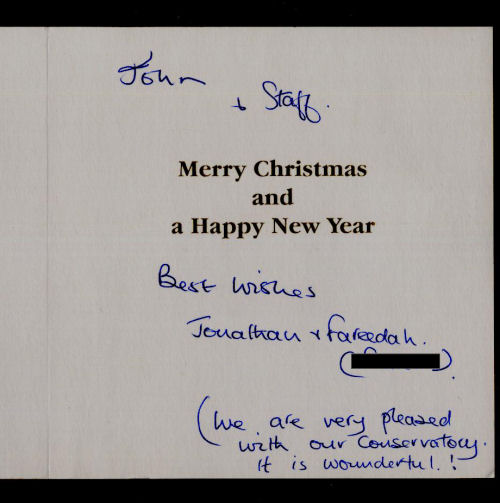 John
+ Staff.
Merry Christmas
and
a Happy New Year
Best wishes
Jonathan + Fareedah.
(We are very pleased
with our Conservatory.
It is wounderful.!